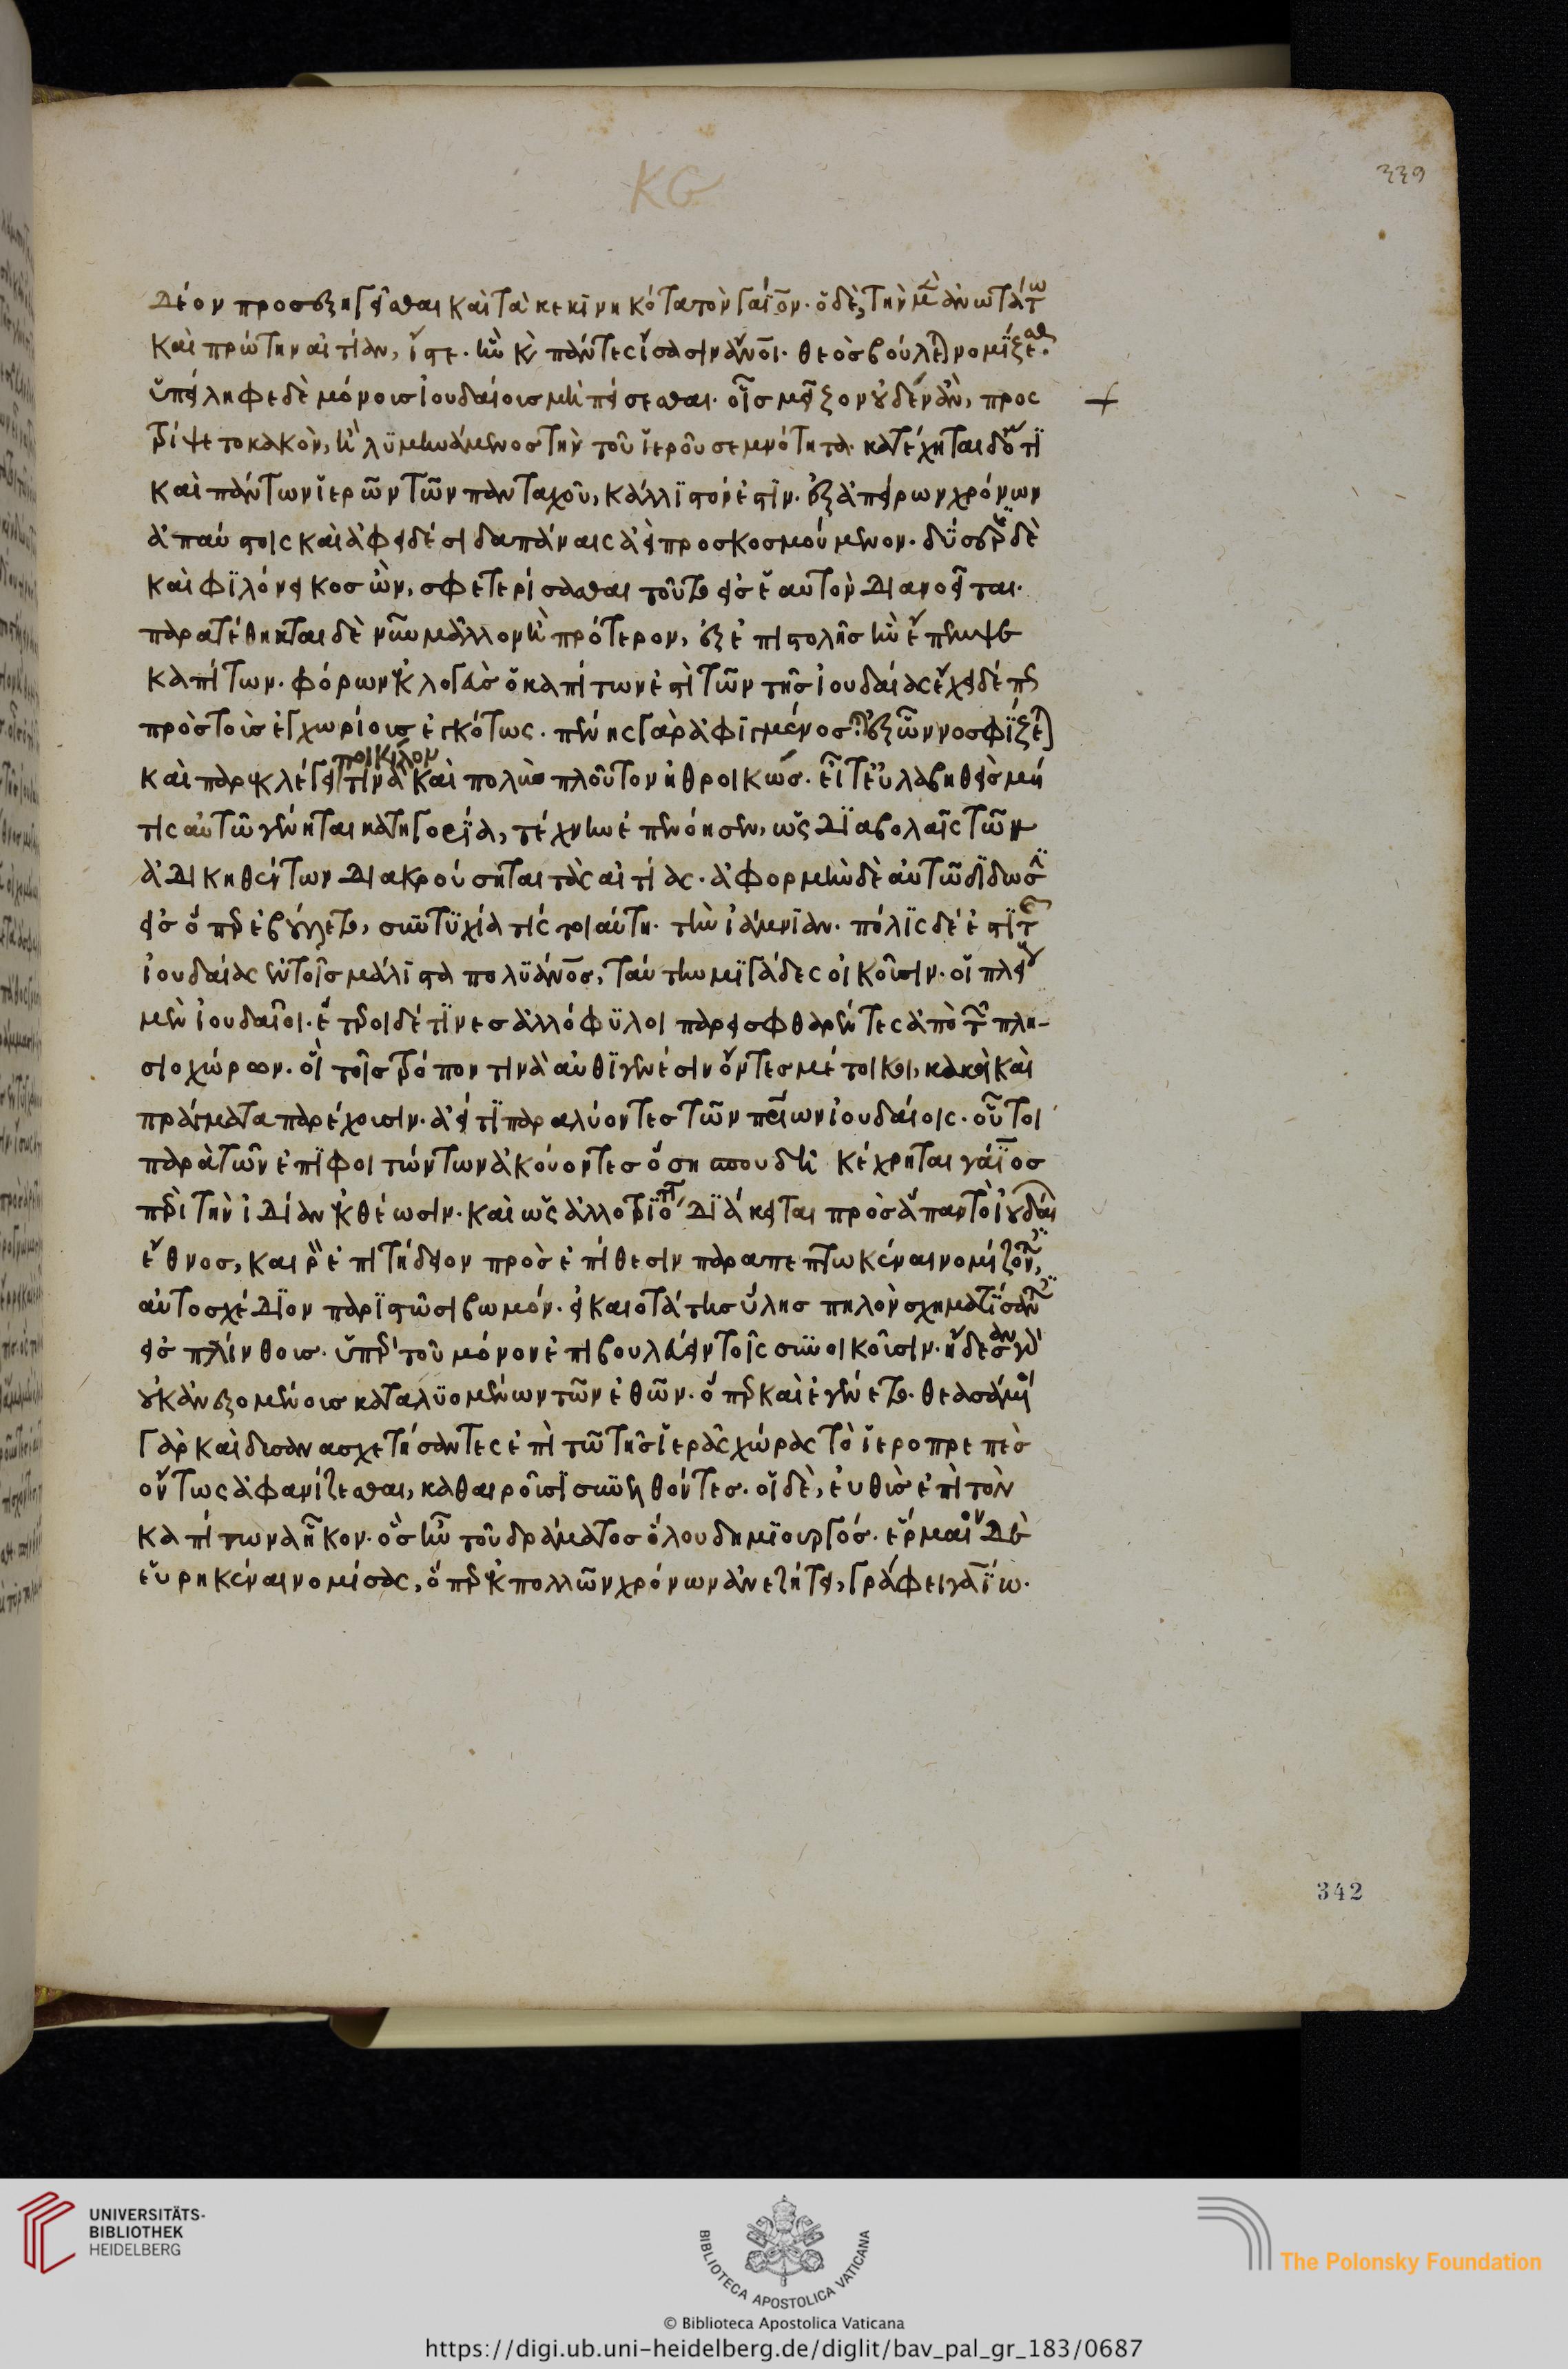 δέον προσεξηγεῖσθαι καὶ τὰ κεκϊνηκότα τὸν γάϊον. ὁ δὲ, τὴν μὲν ἀνωτάτω
καὶ πρώτην αἰτίαν, ἴστε. ἣν κ πάντες ἴσασιν ἄνοι. θεὸς βούλεται νομίζεσθαι.
ὑπείληφε δὲ μόνοις ἰουδαίοις μὴ πείσεσθαι. οἷς μεῖζον οὐδὲν ἂν, προσ
τρίψετο κακὸν, ἢ λϋμηνάμενος τὴν τοῦ ἱεροῦ σεμνότητα. κατήχηται δ ὅτϊ
καὶ πάντων ἱερῶν τῶν πανταχοῦ, κάλλϊστόν ἐστϊν. ἐξ ἀπείρων χρόνων
ἀπαύστοις καὶ ἀφειδέσι δαπάναις ἀεὶ προσκοσμούμενον. δύσερις δὲ
καὶ φϊλόνεικος ὢν, σφετερίσασθαι τοῦτο εἰς ἑαυτὸν διανοεῖται.
παρατέθηκται δὲ νῦν μᾶλλον ἢ πρότερον, ἐξ ἐπιστολῆς ἣν ἔπεμψε
καπίτων. φόρων ἐκλογεὺς ὁ καπίτων ἐστὶ τῶν τῆς ἰουδαίας ἔχει δέ πως
πρὸς τοὺς ἐγχωρίοις ἐγκότως. πένης γὰρ ἀφϊγμένος. ἐξ ὧν νοσφίζεται
καὶ παρεκλέγει ποικίλον τινὰ καὶ πολὺν πλοῦτον ἠθροικώς. εἶτ εὐλαβηθεὶς μή
τις αὐτῶ γένηται κατηγορϊα, τέχνην ἐπενόησεν, ὡς δϊαβολαῖς τῶν
ἀδικηθέντων διακρούσηται τὰς αἰτίας. ἀφορμὴν δὲ αὐτῶ δίδωσϊ
εἰς ὅπερ ἐβούλετο, συντϋχία τίς τοιαύτη. τὴν ἰάμνϊαν. πόλϊς δέ ἐστϊ τῆς
ἰουδαίας ἐν τοῖς μάλϊστα πολϋάνος, ταύτην μϊγάδες οἰκοῦσιν. οἱ πλείους
μὲν ἰουδαῖοι. ἕτεροι δέ τϊνες ἀλλόφϋλοι παρεισφθαρέντες ἀπὸ τῶν πλη-
σιοχώρων. οἳ τοῖς τρόπον τινὰ αὐθϊγενέσιν ὄντες μέτοικοι, κακὰ καὶ
πράγματα παρέχουσιν. ἀεί τϊ παραλύοντες τῶν πρίων ἰουδαίοις. οὗτοι
παρὰ τῶν ἐπϊφοιτώντων ἀκούοντες ὅση σπουδῆ κέχρηται γάϊος
περὶ τὴν ἰδίαν ἐκθέωσιν. καὶ ὡς ἀλλοτριότατα δϊάκειται πρὸς ἅπαν τὸ ἰουδαϊ
ἔθνος, καιρὸν ἐπιτήδειον πρὸς ἐπίθεσιν παραπεπτωκέναι νομίζοντες,
αὐτοσχέδϊον παρϊστῶσι βωμόν. εἰκαιοτάτης ὕλης πηλὸν σχηματίσαντες
εἰς πλίνθοις. ὑπὲρ τοῦ μόνον ἐπιβουλεύειν τοῖς συνοικοῦσιν. ἤδεσαν γὰρ
οὐκ ἀνεξομένοις καταλϋομένων τῶν ἐθῶν. ὅπερ καὶ ἐγένετο. θεασάμενοι
γὰρ καὶ δυσανασχετήσαντες ἐπὶ τῶ τῆς ἱερᾶς χώρας τὸ ἱεροπρεπὲς
ὄντως ἀφανίζεσθαι, καθαιροῦσϊ συνελθόντες. οἱ δὲ, εὐθὺς ἐπὶ τὸν
καπίτωνα ἧκον. ὃς ἦν τοῦ δράματος ὅλου δημϊουργός. ἕρμαιον δὲ
εὑρηκέναι νομίσας, ὅπερ ἐκ πολλῶν χρόνων ἀνεζήτει, γράφει γαΐω.
KG
339
342
UNIVERSITÄTS-
BIBLIOTHEK
HEIDELBERG
BIBLIOTECA APOSTOLICA VATICANA
The Polonsky Foundation
© Biblioteca Apostolica Vaticana
https://digi.ub.uni-heidelberg.de/diglit/bav_pal_gr_183/0687